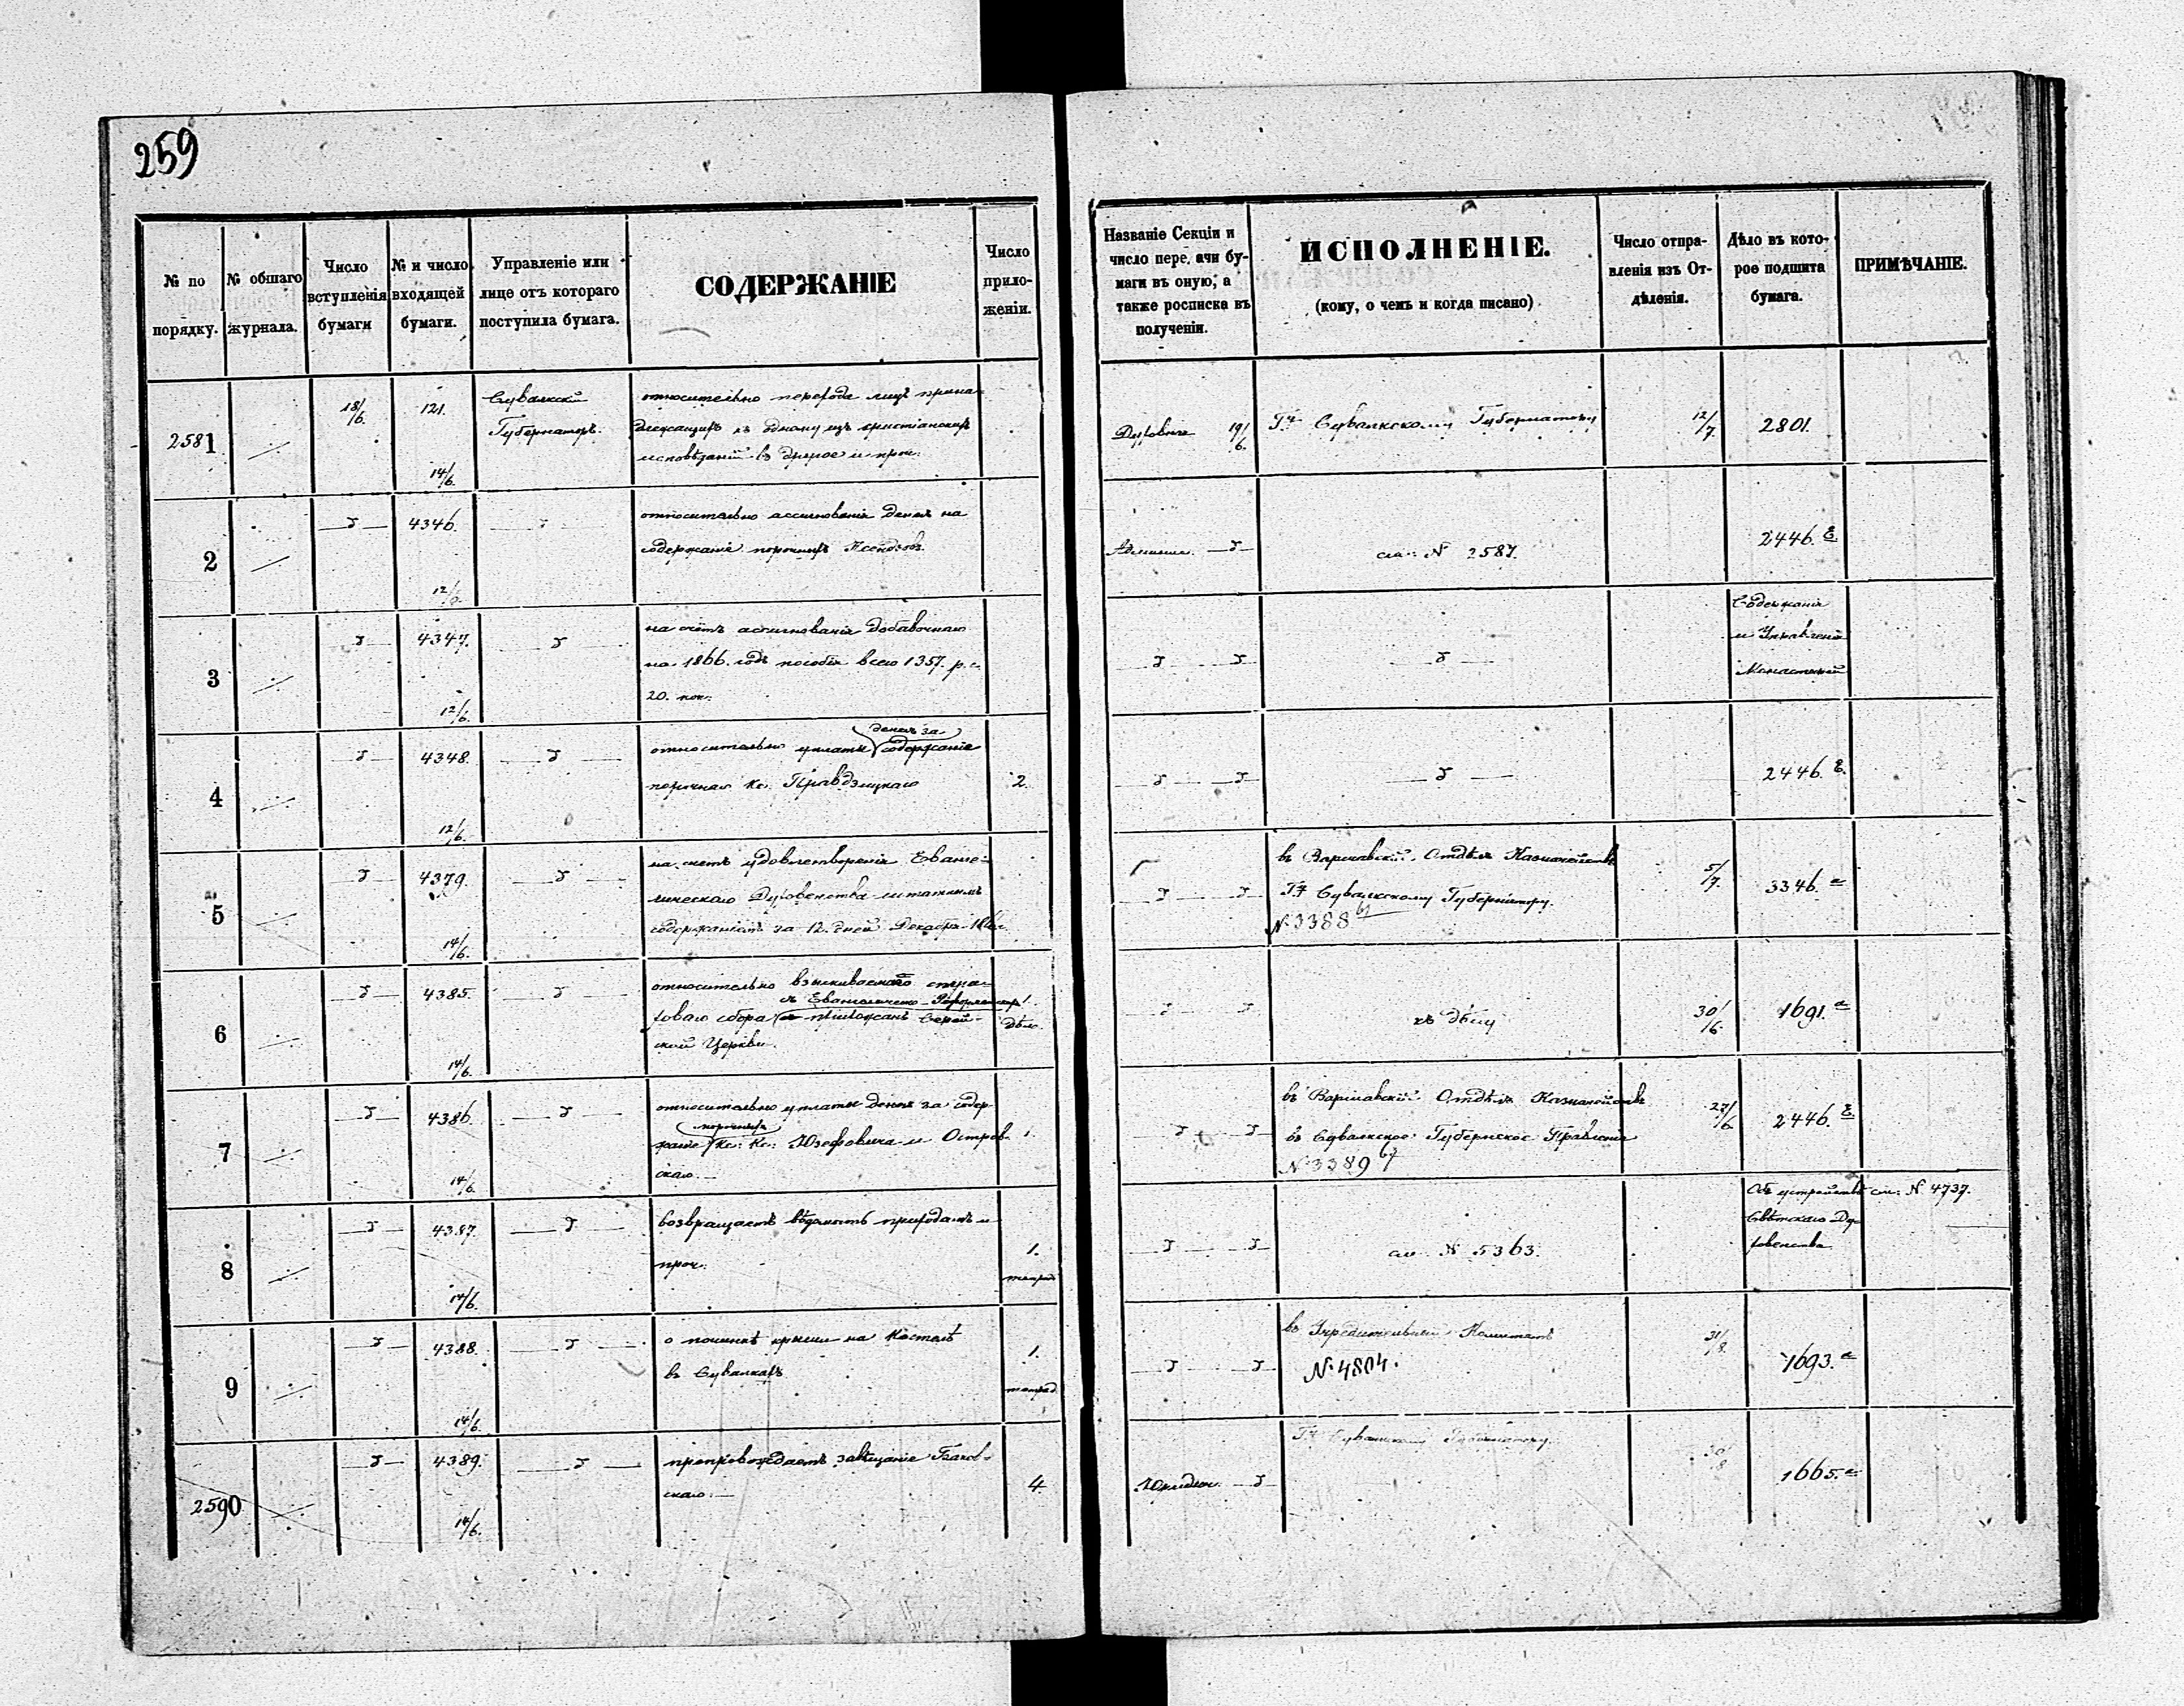 259
№ по порядку.
№ обшаго журнала.
Число вступленія бумаги
№ и число входящей бумаги.
Управленіе или лице отъ котораго поступила бумага.
СОДЕРЖАНІЕ
Число прило-женіи.
Названіе Секціи и число пере,ачи бу-маги въ оную, а также росписка въ полученіи.
ИСПОЛНЕНІЕ.
(кому, о чемъ и когда писано)
Число отпра-вленія изъ От-дѣленія.
Дѣло въ кото-рое подшита бумага.
ПРИМѢЧАНІЕ.
2581
18/6.
121.
14/6.
Сувалкскій
Губернаторъ.
относительно перехода лицъ прина-
длежащихъ къ одному изъ христіанскихъ
исповѣданій въ другое и проч.
Духовные 19/6.
Гну Сувалкскому Губернатору
12/7.
2801.
2
4346.
12/6.
относительно ассигнованія денегъ на
содержаніе порочныхъ Ксендзовъ.
см: N 2587.
2446.
3
4347.
12/6.
на счетъ ассигнованія добавочнаго
на 1866. годъ пособія всего 1357. р. с.
20. коп.
Содержаніе
и Управленіе
Монастырей
4
4348.
12/6.
относительно уплаты денегъ за содержаніе
порочнаго Кс.
2.
2446.
5
4379.
14/6.
на счетъ удовлетворенія Еванге-
лическаго Духовенства штатнымъ
содержаніемъ за 12. дней Декабря
въ Варшавскій Отдѣлъ Казначейства
Гну Сувалкскому Губернатору.
N 3388
5/7.
3346. а
6
4385.
14/6.
относительно взыскиваемаго
съ Евангелическо-Реформатскихъ
сбора прихожанъ Серей-
ской Церкви.
1. дѣло
къ дѣлу
30/6.
1691. а
7
4386.
14/6.
относительно уплаты денегъ за содер-
жаніе порочныхъ Кс: Кс: Юзефовича и Остров-
скаго.
1.
въ Варшавскій Отдѣлъ Казначейства
въ Сувалкское Губернское Правленіе
N 3389 67
27/6.
2446.
8
4387.
14/6.
возвращаетъ вѣдомость приходамъ и
проч.
1.
тетрад
см. N 5363.
Объ устройствѣ
Свѣтскаго Ду-
ховенства
см: N 4737.
9
4388.
14/6.
о починкѣ крыши на Костелѣ
въ Сувалкахъ
1.
тетрад.
въ Учредительный Комитетъ
N. 4804.
31/8.
1693. а
2590
4389.
14/6.
препровождаетъ завѣщаніе
4.
Юридич.
Гну Сувалкскому Губернатору.
1665. а